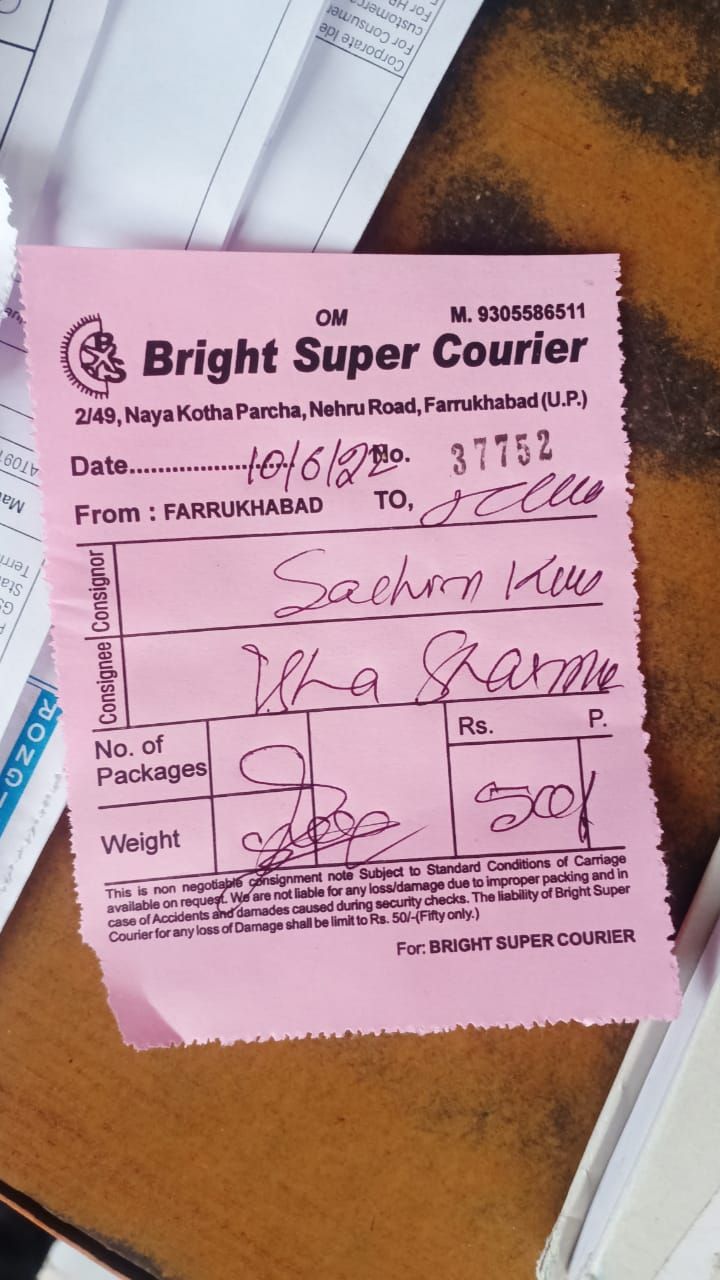 Corporate Ide
For Consumer
customer
For HP
OM M. 9305586511
Bright Super Courier
2/49, Naya Kotha Parcha, Nehru Road, Farrukhabad (U.P.)
Date.................. 10/6/22 No. 37752
From : FARRUKHABAD TO,
Consignor Sachin
Consignee Usha Sharma
Rs. P.
No. of
Packages
50/
Weight
This is non negotiable consignment note Subject to Standard Conditions of Carriage
available on request. We are not liable for any loss/damage due to improper packing and in
case of Accidents and damades caused during security checks. The liability of Bright Super
Courier for any loss of Damage shall be limit to Rs. 50/-(Fifty only.)
For: BRIGHT SUPER COURIER